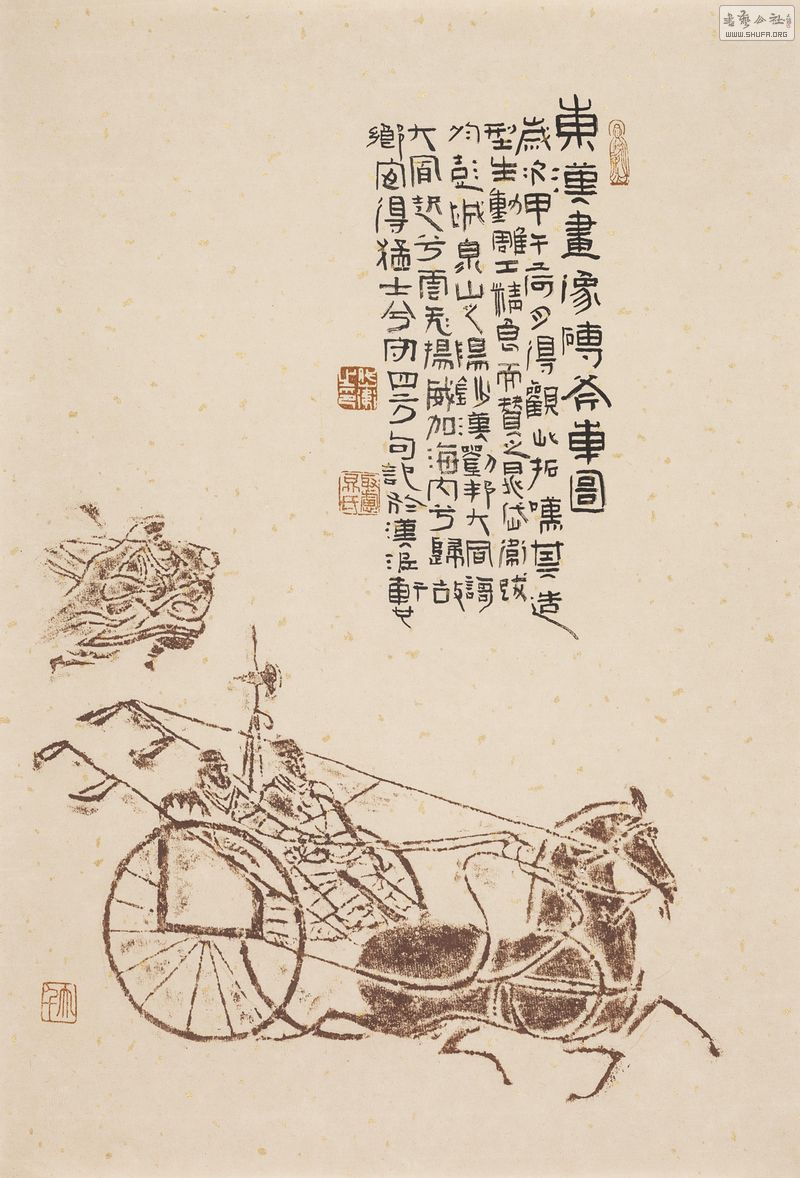 書藝公社
WWW.SHUFA.ORG
東漢畫像磚斧車圖
歲次甲午荷月得觀此拓嘆其造
型生動雕工精良而贊之晁岱衛跋
於彭城泉山之陽漢劉邦大風謌
大風起兮雲飛揚威加海内兮歸故
鄉安得猛士兮守四方句記於漢泥軒